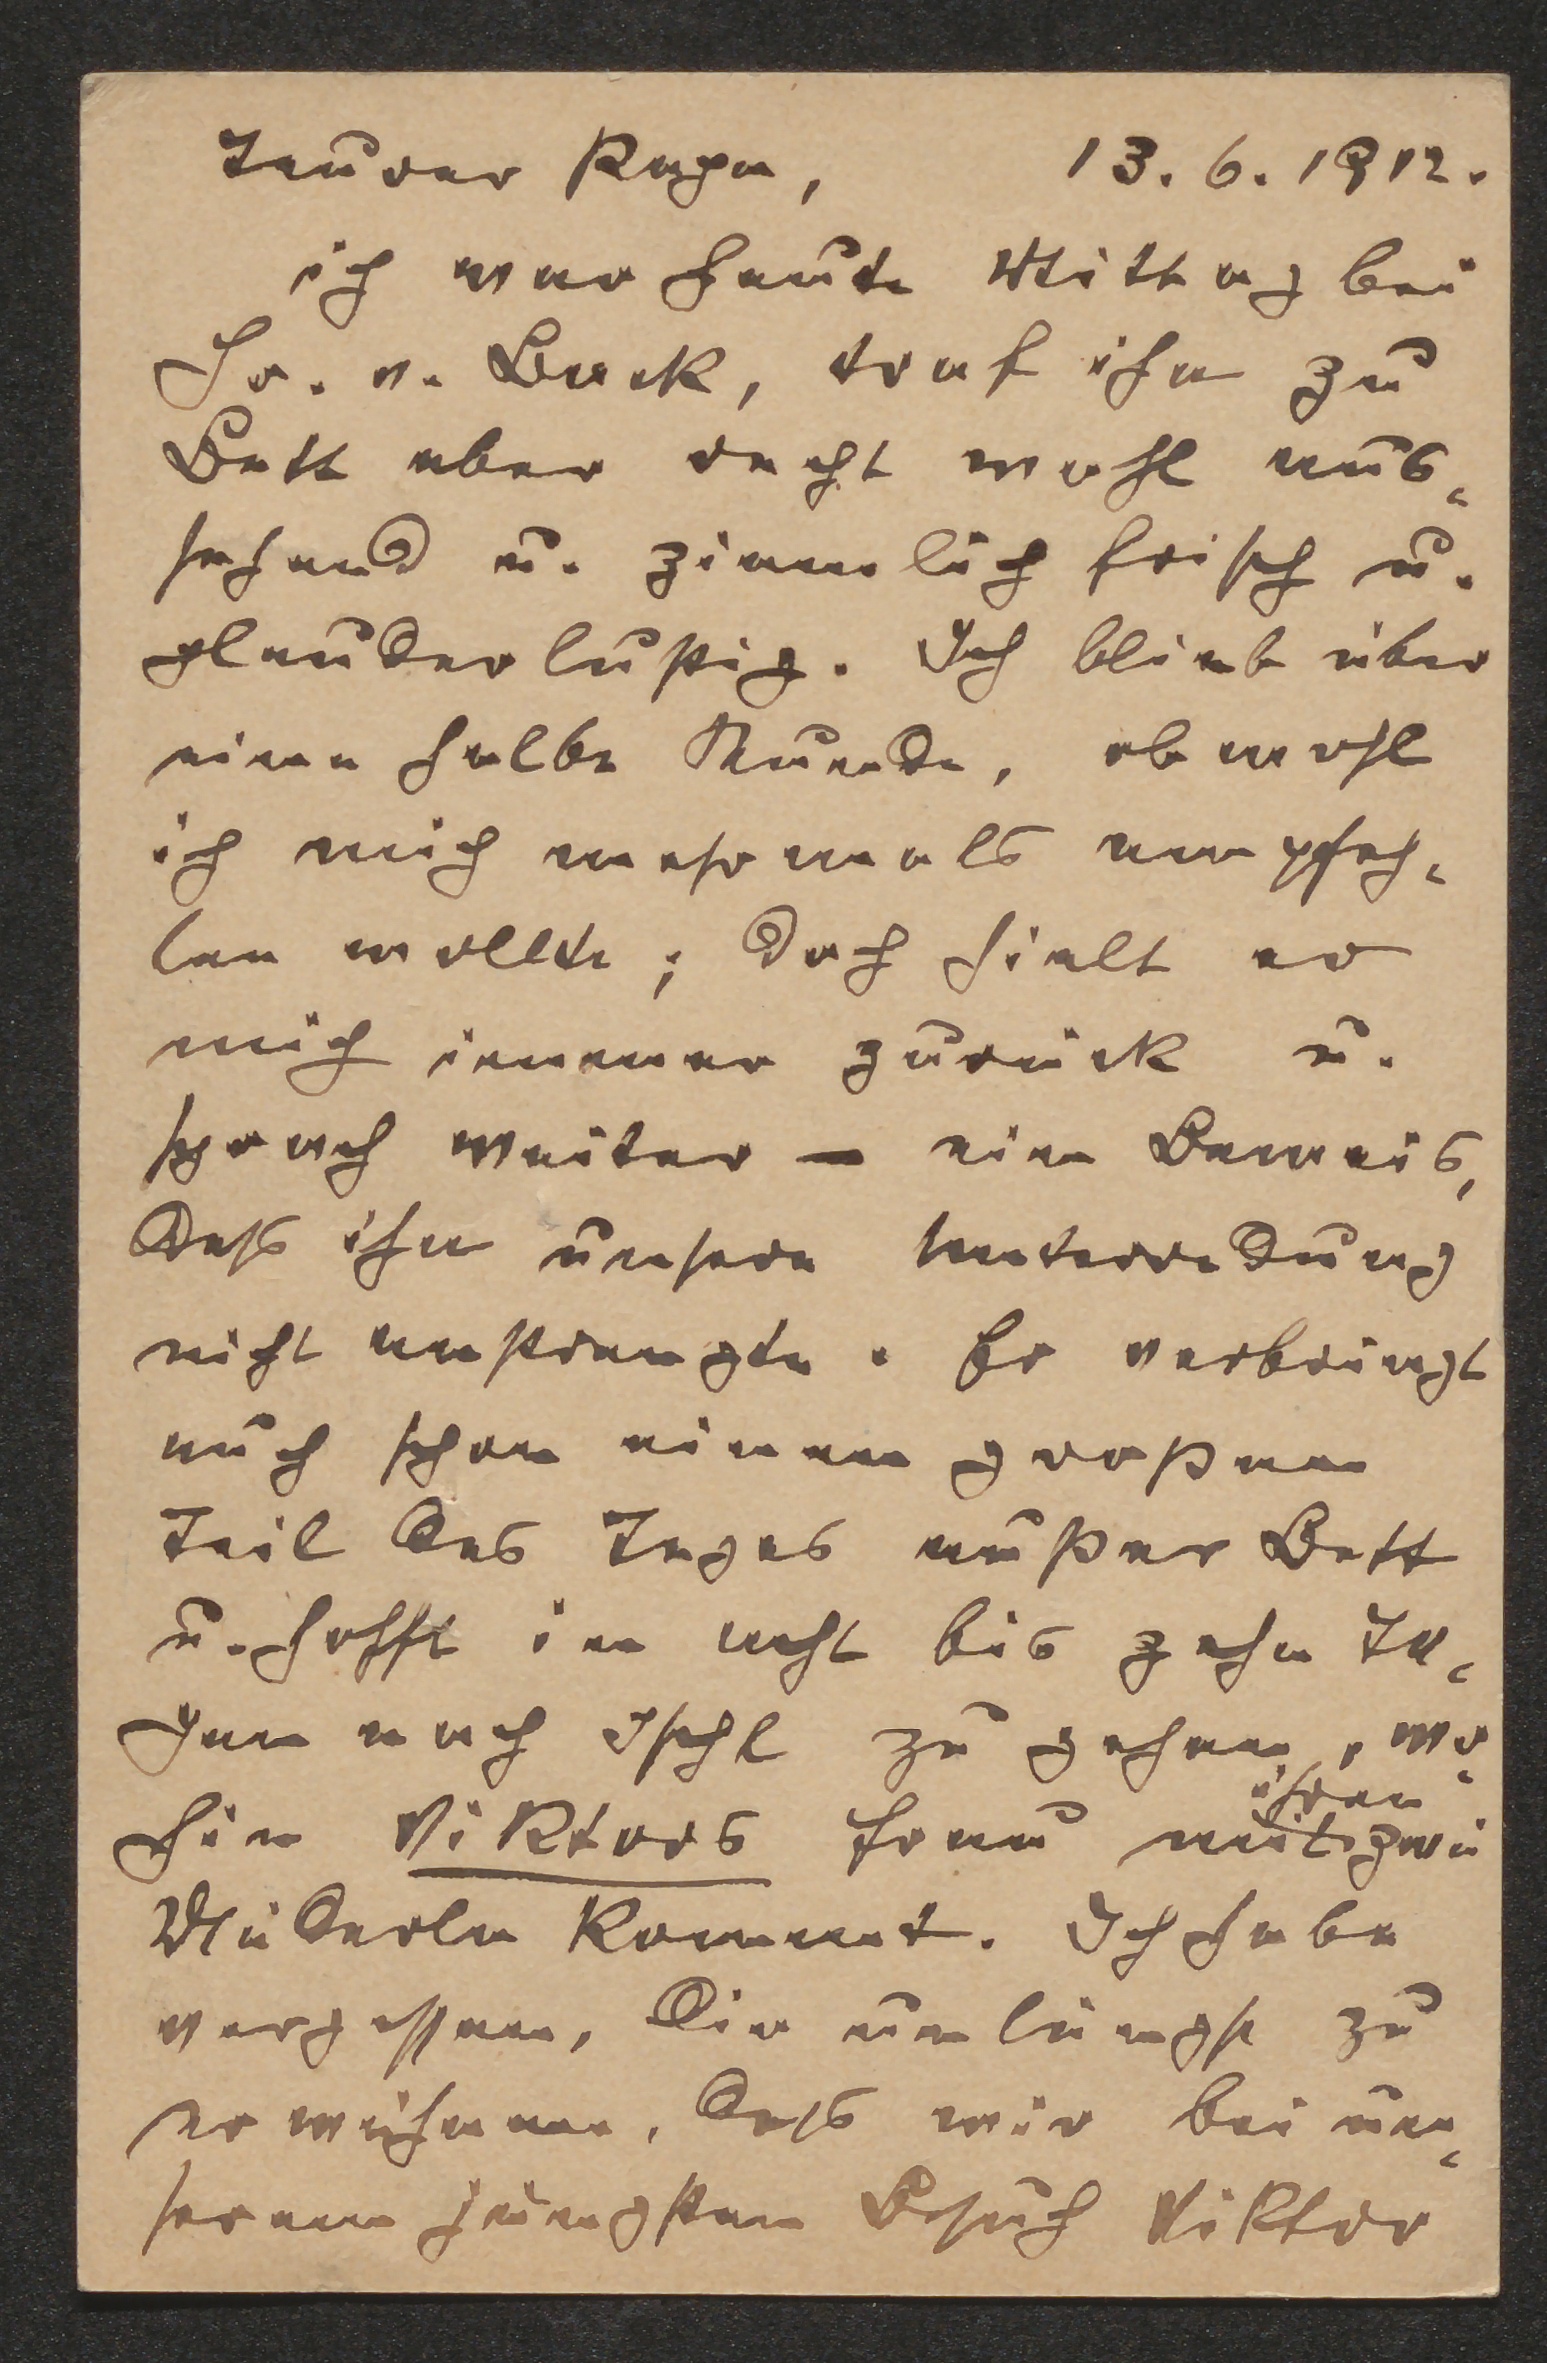 Teurer Papa, 13.6.1912.
ich war heute Mittag bei
Hr. v. Beck, traf ihn zu
Bett aber recht wohl aus-
sehend u. ziemlich frisch u.
plauderlustig. Ich blieb über
eine halbe Stunde, obwohl
ich mich mehrmals empfeh-
len wollte; doch hielt er
mich immer zurück u.
sprach weiter – ein Beweis,
dass ihn unsere Unterredung
nicht anstrengte. Er verbringt
auch schon einen großen
Teil des Tages außer Bett
u. hofft in acht bis zehn Ta-
gen nach Ischl zu gehen, wo-
hin Viktors Frau mit ihren zwei
Mäderln kommt. Ich habe
vergessen, Dir unlängst zu
erwähnen, dass wir bei un-
serem jüngsten Besuch Viktor